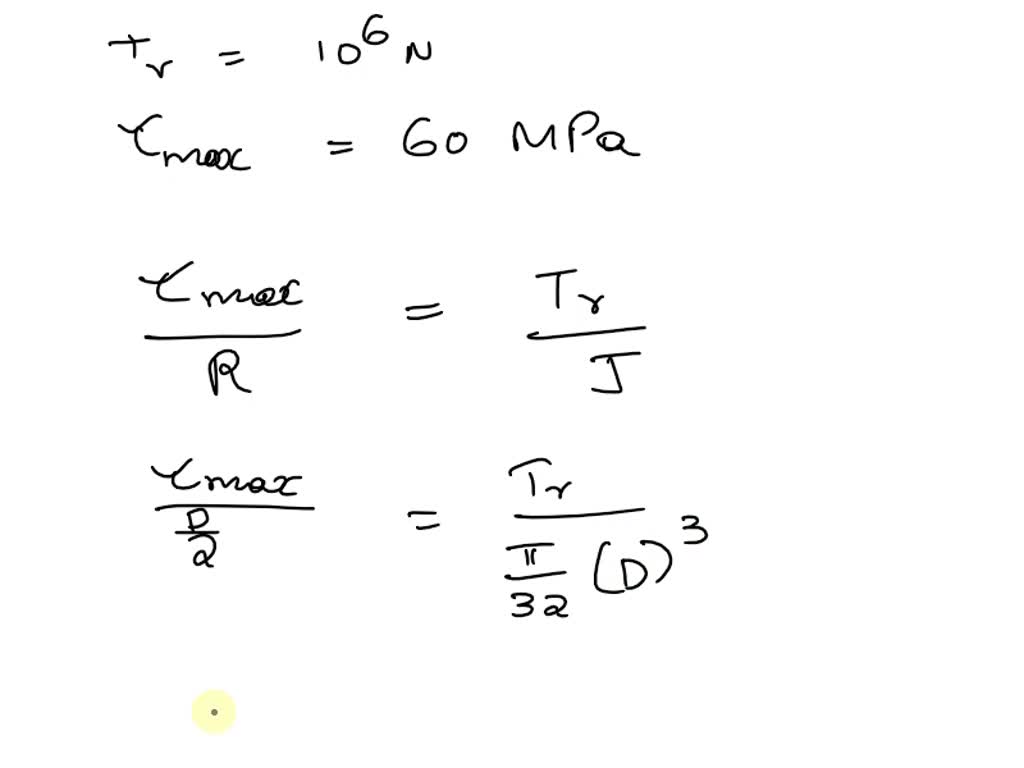 Tr = 10^6 N
τmax = 60 MPa
τmax / R = Tr / J
τmax / (D/2) = Tr / (π/32 (D)^3)